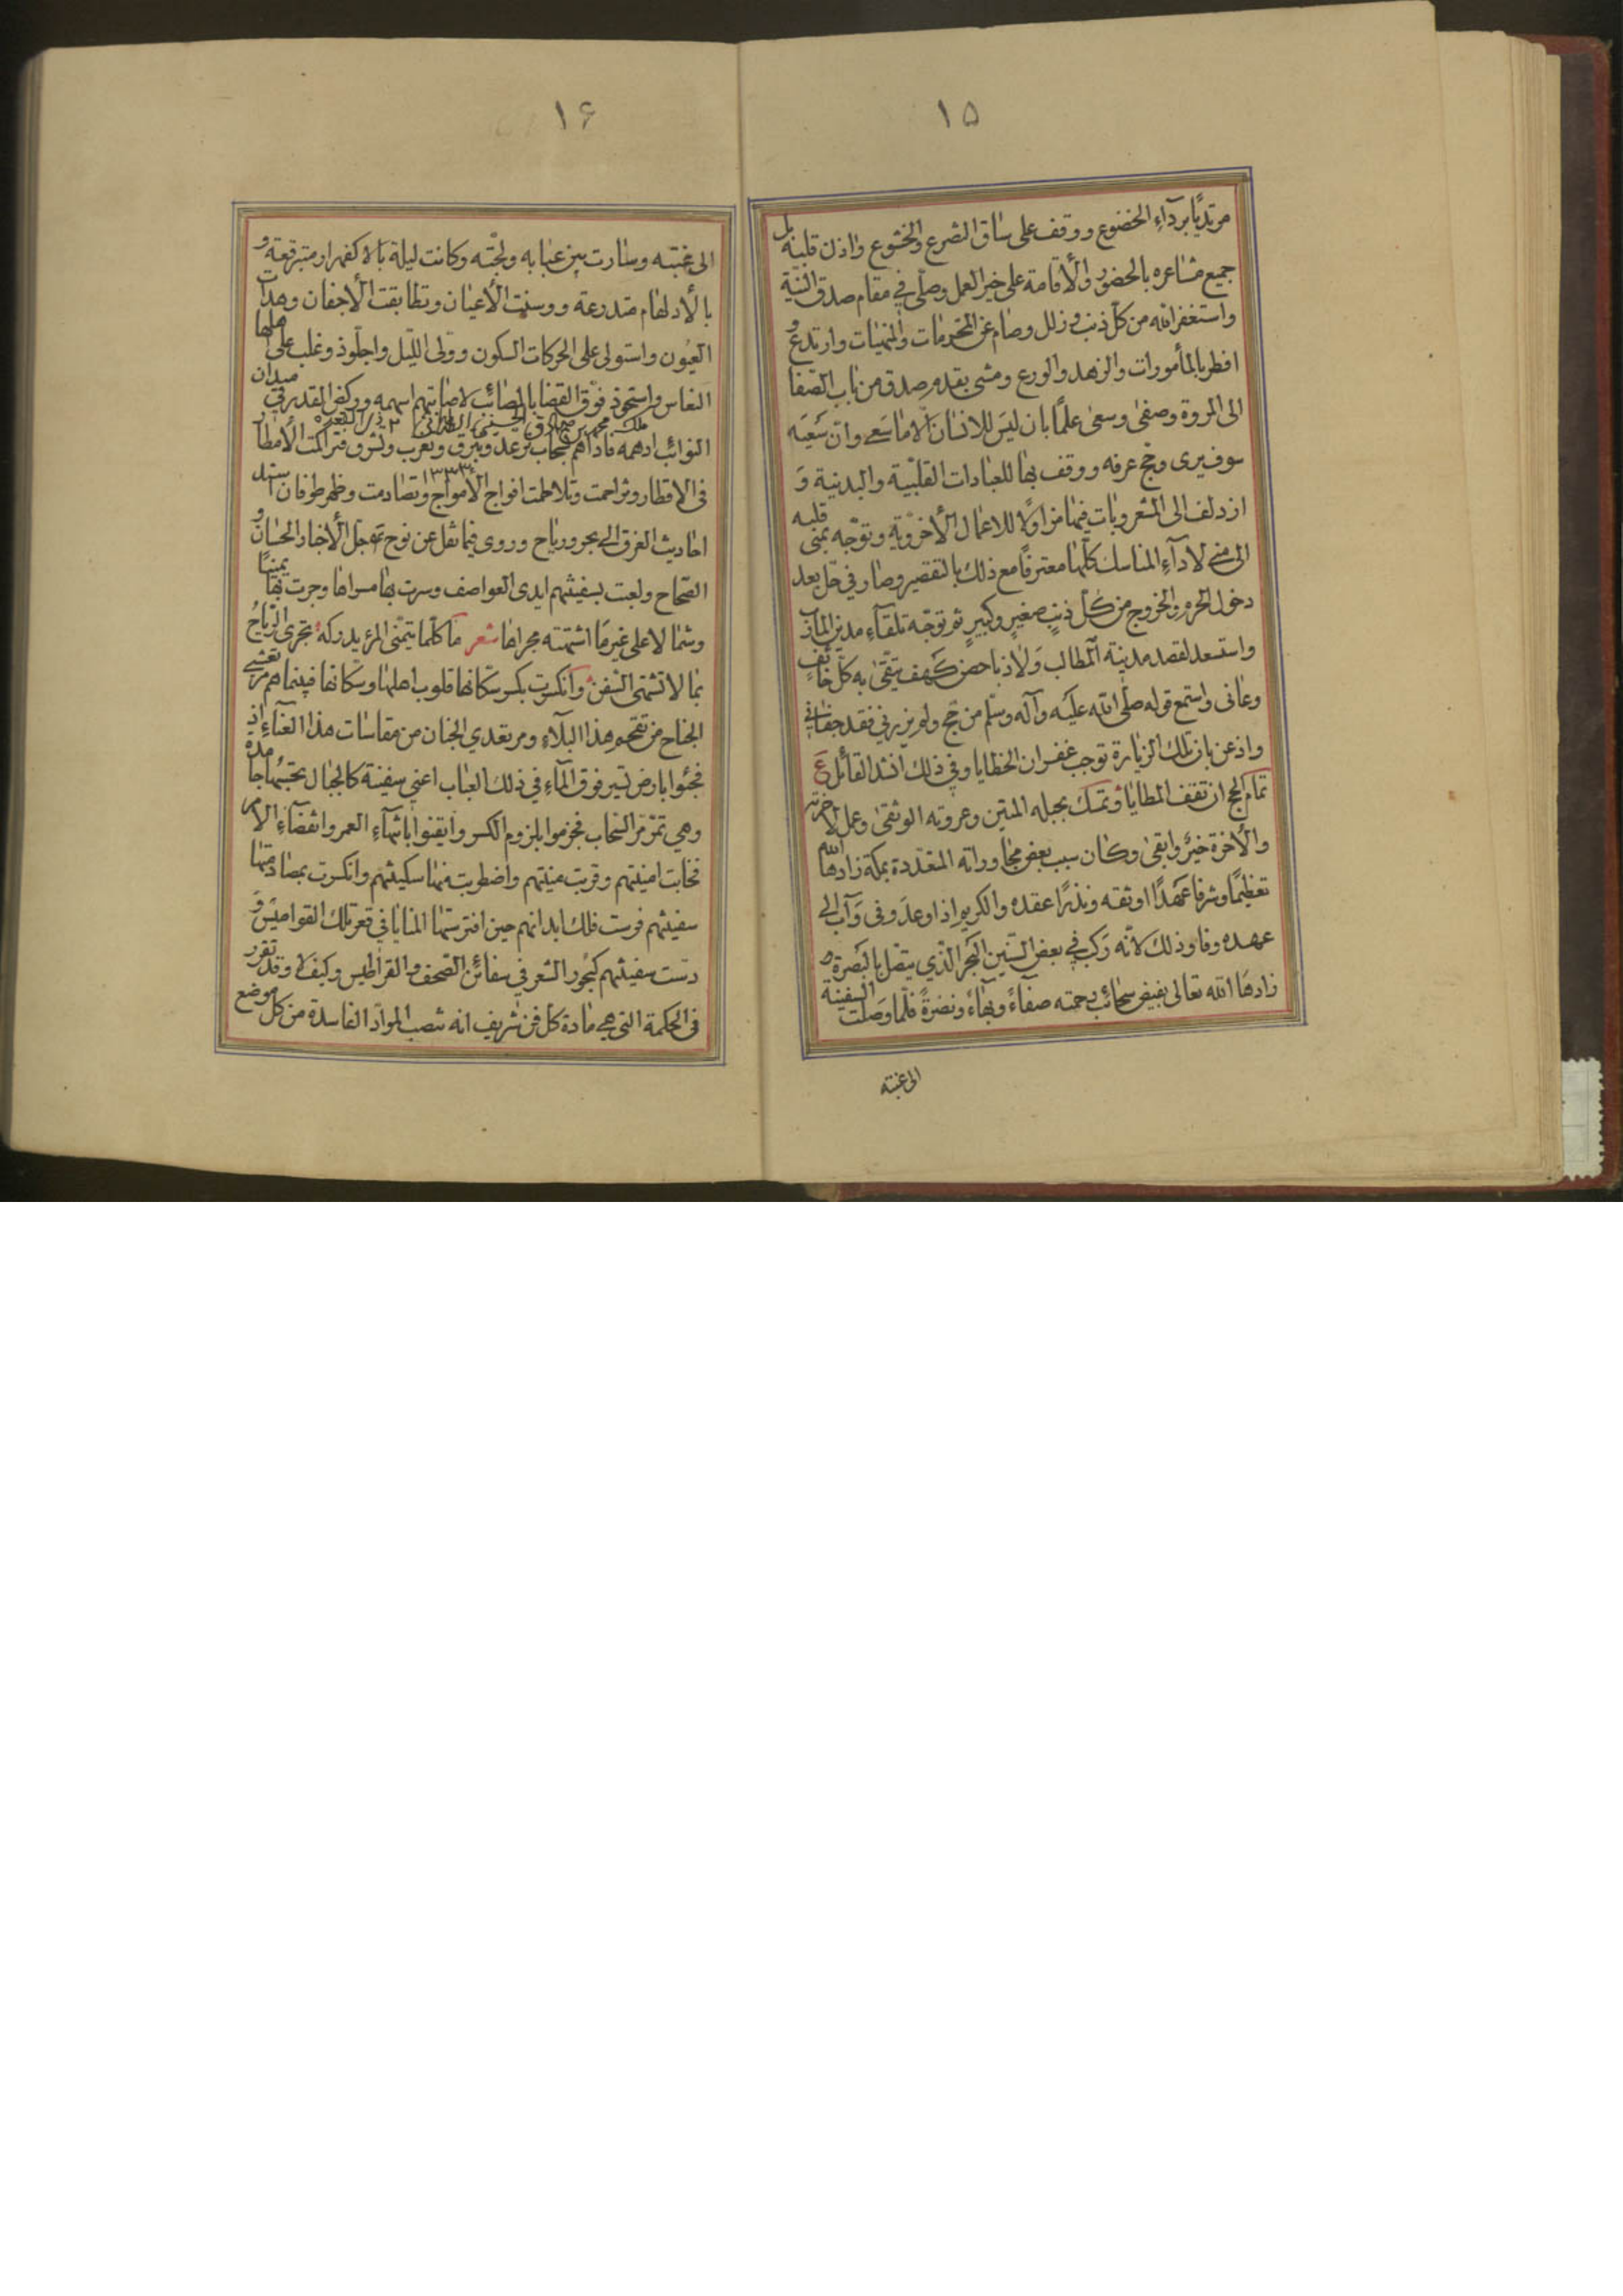 ١۵
مرتديًا برداءِ الخضوع ووقف على ساق الضرع والخشوع واذن قلبه بل
جميع مشاعره بالحضور والأقامة على خير العمل وصلّى في مقام صدق النيّة
واستغفر الله من كلّ ذنب وزلل وصام عن المحرمات والمنهيات وارتدع و
افطر بالمأمورات والزهد والورع ومشى بقدم صدق من باب الصّفا
الى المروة وصفى وسعى علمًا بان ليس للانسان الّا ما سعى وانّ سَعيَه
سوف يرى وحج عرفه ووقف بها للعبادات القلبيّة والبدنية وَ
ازدلف الى المشعر وبات فيها مزاولًا للاعمال الأخرويّة وتوجّه بمنى قلبه
الى منى لاداءِ المناسك كلّها معترفًا مع ذلك بالتقصير وصار في حلّ بعد
دخول الحرم والخروج من كل ذنبٍ صغيرٍ وكبيرٍ ثمّ توجّه تلقآءِ مدين المآرب
واستسعد لقصد مدينة المطالب وَلاذ باحصن كَهف يتّقى به كلّ خائفٍ
وعانى واستمع قوله صلّى الله عليَه وآله وسلّم من حجّ ولم يزرني فقد جفاني
واذعن بان تلك الزيارة توجب غفران الخطايا وفي ذلك انشد القائل ع
تمام الحج ان تقف المطايا وتمسك بحبله المتين وعروته الوثقى وعمل لآخرته
والأخرة خيرٌ وابقى وكان سبب بعض مجاوراته المتعدّدة بمكة زادها الله
تعظيمًا وشرفا عَهدًا اوثقه ونذرًا عقده والكريم اذا وعدَ وفى وَآب الى
عهده وفا وذلك لانّه رَكب في بعض السّنين البحر الّذي يتصل بالبَصرة
زادهَا الله تعالى بفيض سحائب رحمته صفآءً وبهآءً ونضرةً فلمّا وصَلت السفينة
الى غبته
١۶
الى غبته وسارت بين عبابه ولجّته وكانت ليلة بالاكفهرار متبرقعة و
بالأدلهام متدرعة ووسنت الأعيان وتطابقت الأجفان وهدات
العيُون واستولى على الحركات السكون وولّى اللّيل واجلّوذ وغلب على اهلها
النعاس واستحوذ فوّق القضا بالمصائب لاصابتهم اسهمه وركض القدر في ميدان
ملك محمد بن صادق الحسيني الطهراني ٢ ذى القعده
النوائب ادهمه فاذاهم بسحاب ترعد وتبرق وتغرب وتشرق فتراكمت الأمطار
١٣٣٣
فى الاقطار وتزاحمت وتلاطمت افواج الامواج وتصادمت وظهر طوفان اسند
احاديث الغرق الى بحر ورياح وروى فيما نقل عن نوح تم جل الأخبار الحسان و
الصّحاح ولعبت بسفينتهم ايدى العواصف وسرت بها مسراها وجرت بها يمينًا
وشمالا على غير مَا اشتهته مجراها شعر مَا كلّما يتمنّى المرؤ يدركه تجرى الرّياحُ
بما لا تشتهى السّفن وانكسرت بكسر سكّانها قلوب اهلها وسكّانها فبينما هم مرتعشي
الجناح من تقحم هذا البلآءِ ومرتعدي الجنان من مقاسات هذا العنآءِ اذ
فجئوا بارض تسير فوق المآءِ في ذلك العباب اعني سفينة كالجبال تحسبُها جامدة
وهي تمرّ مرّ السّحاب فجزموا بلزوم الكسر وأيقنوا بانتهآءِ العمر وانقضآءِ الامر
فخابت امنيتهم وقربت منيتهم واضطربت منها سكينتهم وانكسرت بمصادمتها
سفينتهم فرست فلك ابدانهم حين افترستها المنايا في قعر تلك القواميس وَ
رسَت سفينتهم كبحُور الشعر في سفائن الصّحف والقراطيس وكيف لا وقد تقرر
فى الحكمة التي هي مادة كل فن شريف انه تنصب الموادّ الفاسدة من كل موضع